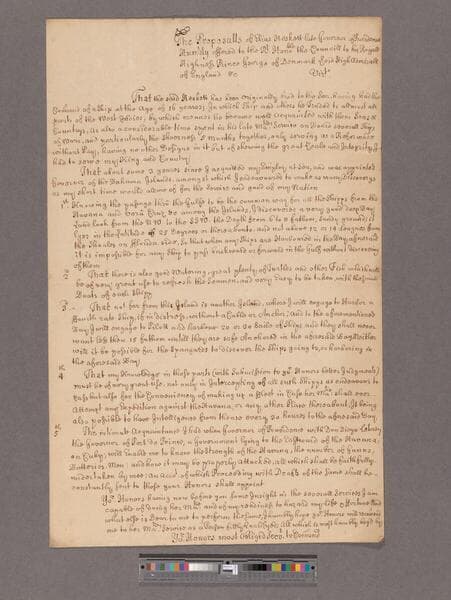 The Proposalls of Elias Haskett late Governor of Providence
humbly offered to the Rt. Honble the Councill to his Royall
Highness Prince George of Denmark Lord High Admirall
of England &c Vizt
That the said Haskett has been originally bred to the Sea, having had the
Comand of a Ship at the Age of 16 years; In which Ship and others he Traded to almost all
parts of the West Indies, by which means he became well Acquainted with those Seas &
Countrys, As also a considerable time spent in his late Matys Service on board severall Ships
of
without Pay, having no other Designe in it but of shewing the great Zeale and Integrity I
had to serve my King and Country
That about some 3 yeares since I acquitted my Imploy at Sea, and was appointed
Governor of the Bahama Islands, among st which I endeavoured to make as many Discoverys
as my short time would allow of for the Service and good of my Nation
1st Knowing the passage thro the Gulfe to be the common way for all the Shipps from the
Havana and Vera Cruz, so among the Islands, I discovered a very good deep Bay
Land lock from the to the The Depth from 6 to 8 fathom, Sandy ground, it
lyes in the Latitude of 25 Degrees or thereabouts, and not above 12 or 14 leagues from
the Shoales on Florida side, so that when any Ships are Harboured in the Bay aforesaid
it is impossible for any Ship to pass backwards or forward in the Gulf without discovery
of them
2 That there is also good Watering, great plenty of Turtles and other Fish which will
be of very great use to refresh the Seamen, and very Easy to be taken with the small
Boats of each Shipp
3 That not far from this Island is another Island, where I will engage to Harbor a
fourth rate Ship, if in distress without a Cable or Anchor; And in the aforementioned
Bay I will engage to Pilott and harbour 20 or 30 Saile of Ships and they shall never
want less than 15 fathom untill they are safe Anchored in the aforesaid Bay Neither
will it be possible for the Spanyards to discover the Ships going to, or harboring in
the aforesaid Bay
4 That my Knowledge in those parts (with Submission to yr Honors better Judgments)
must be of very great use, not only in Intercepting of all such Shipps as endeavour to
pass but also for the Conveniency of making up a Fleet in Case her Maty shall ever
Attempt any Expedition against the Havana, or any other Place thereabout. It being
also possible to have Intelligence from thence every 30 houres to the aforesaid Bay
5 The intimate Acquaintance I had when Governor of Providence with Don Diego
the Governor of Port du Prince, a Government lying to the Eastward of the Havana,
on Cuba, will inable me to know the Strength of the Havana, the number of Gunns,
Batterios, Men, and how it may be properly Attack'd, all which shall be faithfully
undertaken by me; an Acct. of which Proceeding with Draft of the same shall be
constantly sent to those your Honors shall appoint
Yor Honors having now before you some Insight in the severall Services I am
capable of doing her Maty and of my readiness to hazard my life & fortune
what else is Dear to me to performe the same, I humbly hope yor Honors will recomend
me to her Matys Service as a Person fittly All which is most humbly beg'd by
Yor Honors most Obliged Servt to Comand